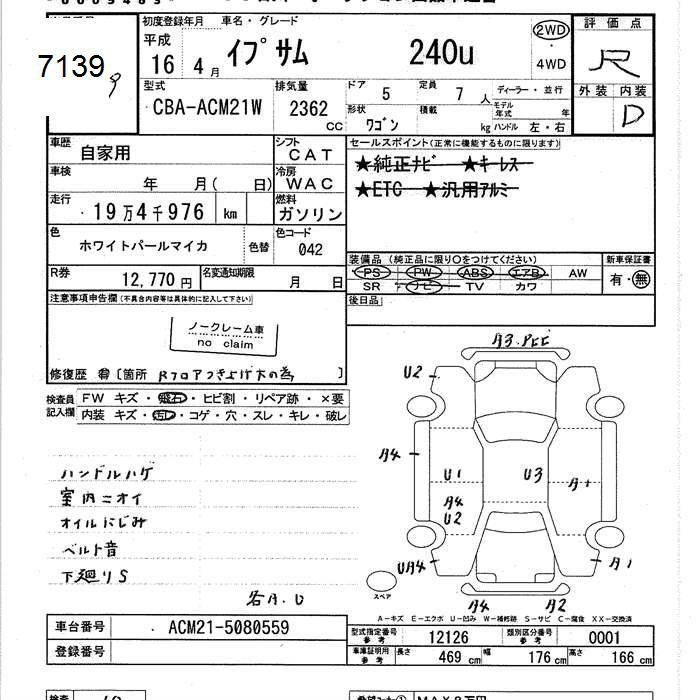 7139
初度登録年月 車名・グレード
平成 16年 4月 イプサム 240u 2WD・4WD
評価点 R
外装 内装 D
型式 CBA-ACM21W
排気量 2362 CC
ドア 5 定員 7人
形状 ワゴン 積載 kg
ディーラー・並行
モデル年式 年
ハンドル 左・右
車歴 自家用
シフト CAT
車検 年 月( 日)
冷房 WAC
走行 19万4千976 km
燃料 ガソリン
色 ホワイトパールマイカ 色替
色コード 042
R券 12,770円 名変通知期限 月 日
セールスポイント(正常に機能するものに限ります)
★純正ナビ ★キーレス
★ETC ★汎用アルミ
装備品 (純正品に限り○をつけてください) 新車保証書
PS PW ABS エアB AW 有・無
SR ナビ TV カワ
後日品
注意事項申告欄(不具合内容等は具体的に記入して下さい)
ノークレーム車
no claim
修復歴 有 [箇所 Rフロアつき上げ大の為 ]
検査員記入欄
FW キズ・飛石・ヒビ割・リペア跡・×要
内装 キズ・汚レ・コゲ・穴・スレ・キレ・破レ
ハンドルハゲ
室内ニオイ
オイルにじみ
ベルト音
下廻りS
各A.U
U2
A4
U1
U3
A1
A4
U2
UA4
A1
スペア
A4
A2
A－キズ E－エクボ U－凹み W－補修跡 S－サビ C－腐食 XX－交換済
車台番号 ACM21-5080559
登録番号
型式指定番号 参考 12126 類別区分番号 参考 0001
車庫証明用 参考 長さ 469cm 幅 176cm 高さ 166cm
検査